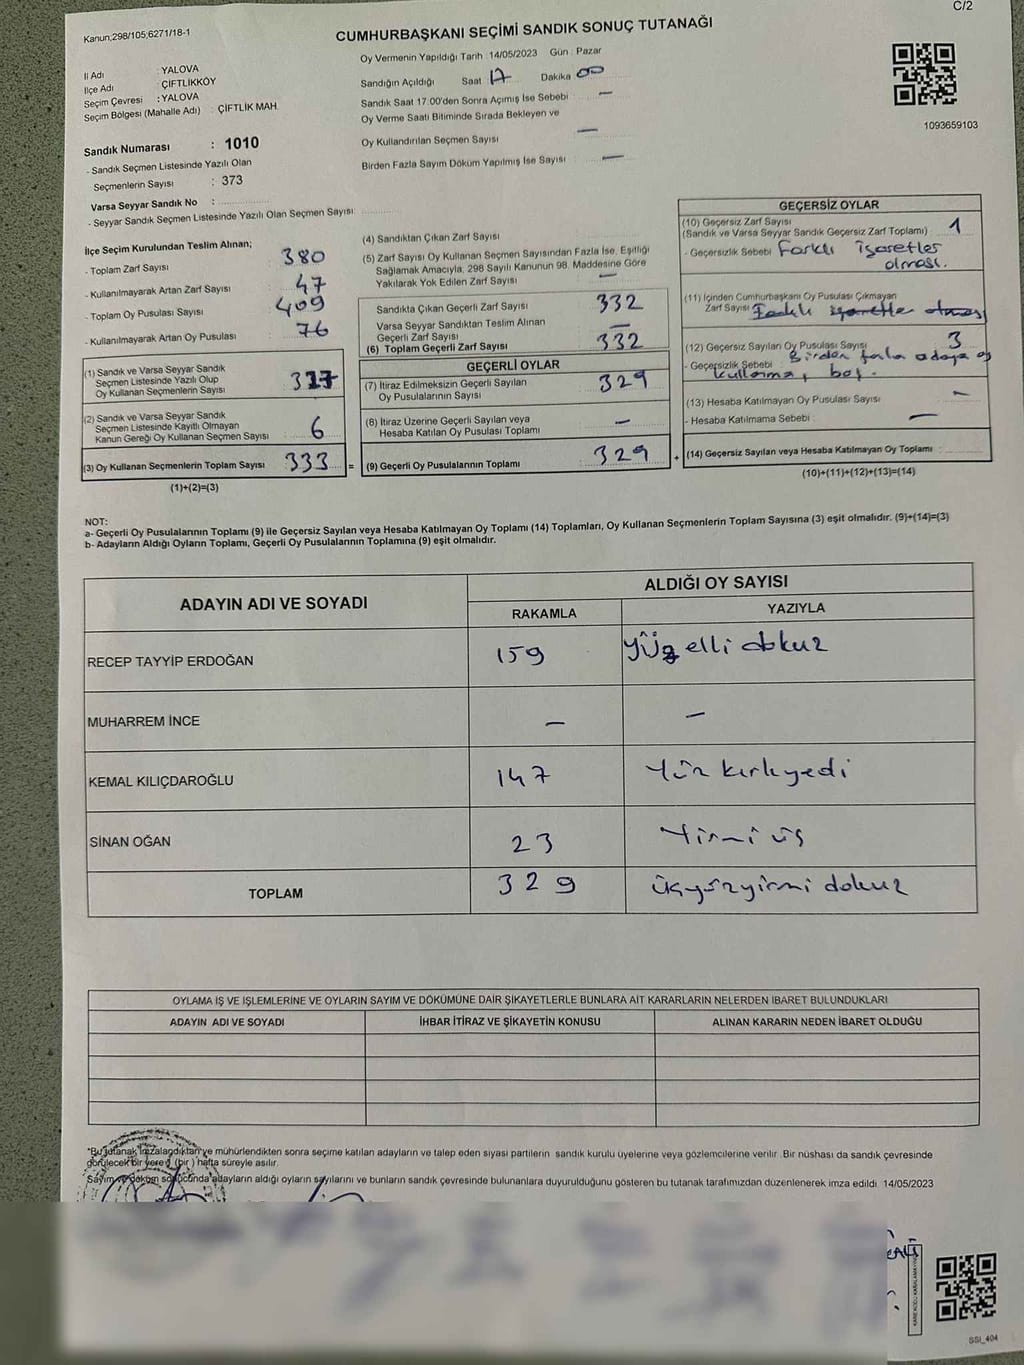 C/2
Kanun;298/105;6271/18-1
CUMHURBAŞKANI SEÇİMİ SANDIK SONUÇ TUTANAĞI
İl Adı : YALOVA
İlçe Adı : ÇİFTLİKKÖY
Seçim Çevresi : YALOVA
Seçim Bölgesi (Mahalle Adı) : ÇİFTLİK MAH.
Sandık Numarası : 1010
- Sandık Seçmen Listesinde Yazılı Olan
Seçmenlerin Sayısı : 373
Varsa Seyyar Sandık No :
- Seyyar Sandık Seçmen Listesinde Yazılı Olan Seçmen Sayısı:
Oy Vermenin Yapıldığı Tarih : 14/05/2023 Gün : Pazar
Sandığın Açıldığı Saat 17 Dakika 00
Sandık Saat 17:00'den Sonra Açımış İse Sebebi : —
Oy Verme Saati Bitiminde Sırada Bekleyen ve
Oy Kullandırılan Seçmen Sayısı —
Birden Fazla Sayım Döküm Yapılmış İse Sayısı : —
1093659103
İlçe Seçim Kurulundan Teslim Alınan;
- Toplam Zarf Sayısı 380
- Kullanılmayarak Artan Zarf Sayısı 47
- Toplam Oy Pusulası Sayısı 409
- Kullanılmayarak Artan Oy Pusulası 76
(1) Sandık ve Varsa Seyyar Sandık
Seçmen Listesinde Yazılı Olup
Oy Kullanan Seçmenlerin Sayısı
(2) Sandık ve Varsa Seyyar Sandık
Seçmen Listesinde Kayıtlı Olmayan
Kanun Gereği Oy Kullanan Seçmen Sayısı 6
(3) Oy Kullanan Seçmenlerin Toplam Sayısı 333 =
(1)+(2)=(3)
(4) Sandıktan Çıkan Zarf Sayısı
(5) Zarf Sayısı Oy Kullanan Seçmen Sayısından Fazla İse, Eşitliği
Sağlamak Amacıyla, 298 Sayılı Kanunun 98. Maddesine Göre
Yakılarak Yok Edilen Zarf Sayısı —
Sandıkta Çıkan Geçerli Zarf Sayısı 332
Varsa Seyyar Sandıktan Teslim Alınan
Geçerli Zarf Sayısı —
(6) Toplam Geçerli Zarf Sayısı 332
GEÇERLİ OYLAR
(7) İtiraz Edilmeksizin Geçerli Sayılan
Oy Pusulalarının Sayısı 329
(8) İtiraz Üzerine Geçerli Sayılan veya
Hesaba Katılan Oy Pusulası Toplamı —
(9) Geçerli Oy Pusulalarının Toplamı 329 +
GEÇERSİZ OYLAR
(10) Geçersiz Zarf Sayısı
(Sandık ve Varsa Seyyar Sandık Geçersiz Zarf Toplamı) 1
- Geçersizlik Sebebi Farklı işaretler
olması.
(11) İçinden Cumhurbaşkanı Oy Pusulası Çıkmayan
Zarf Sayısı Farklı işaretler olması
(12) Geçersiz Sayılan Oy Pusulası Sayısı 3
- Geçersizlik Sebebi Birden fazla adaya oy
kullanma, boş.
(13) Hesaba Katılmayan Oy Pusulası Sayısı —
- Hesaba Katılmama Sebebi : —
(14) Geçersiz Sayılan veya Hesaba Katılmayan Oy Toplamı :
(10)+(11)+(12)+(13)=(14)
NOT:
a- Geçerli Oy Pusulalarının Toplamı (9) ile Geçersiz Sayılan veya Hesaba Katılmayan Oy Toplamı (14) Toplamları, Oy Kullanan Seçmenlerin Toplam Sayısına (3) eşit olmalıdır. (9)+(14)=(3)
b- Adayların Aldığı Oyların Toplamı, Geçerli Oy Pusulalarının Toplamına (9) eşit olmalıdır.
ADAYIN ADI VE SOYADI
ALDIĞI OY SAYISI
RAKAMLA YAZIYLA
RECEP TAYYİP ERDOĞAN 159 Yüz elli dokuz
MUHARREM İNCE — —
KEMAL KILIÇDAROĞLU 147 Yüz kırkyedi
SİNAN OĞAN 23 Yirmi üç
TOPLAM 329 üçyüzyirmi dokuz
OYLAMA İŞ VE İŞLEMLERİNE VE OYLARIN SAYIM VE DÖKÜMÜNE DAİR ŞİKAYETLERLE BUNLARA AİT KARARLARIN NELERDEN İBARET BULUNDUKLARI
ADAYIN ADI VE SOYADI İHBAR İTİRAZ VE ŞİKAYETİN KONUSU ALINAN KARARIN NEDEN İBARET OLDUĞU
*Bu tutanak imzalandıktan ve mühürlendikten sonra seçime katılan adayların ve talep eden siyasi partilerin sandık kurulu üyelerine veya gözlemcilerine verilir. Bir nüshası da sandık çevresinde
görülecek bir yere 1 (bir) hafta süreyle asılır.
Sayım ve döküm sonucunda adayların aldığı oyların sayılarını ve bunların sandık çevresinde bulunanlara duyurulduğunu gösteren bu tutanak tarafımızdan düzenlenerek imza edildi. 14/05/2023
SSİ_404